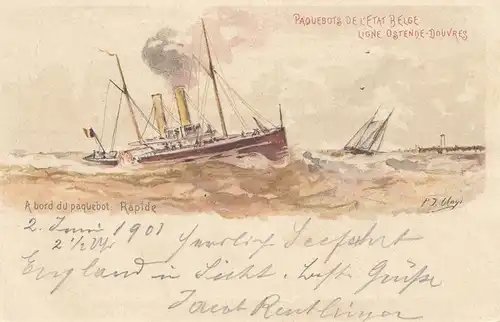 PAQUEBOTS DE L'ETAT BELGE
LIGNE OSTENDE-DOUVRES
A bord du paquebot Rapide
2. Juni 1901
2 1/2 Uhr Herrlich Seefahrt
England in Sicht. Grüße
Jacob Reutlinger